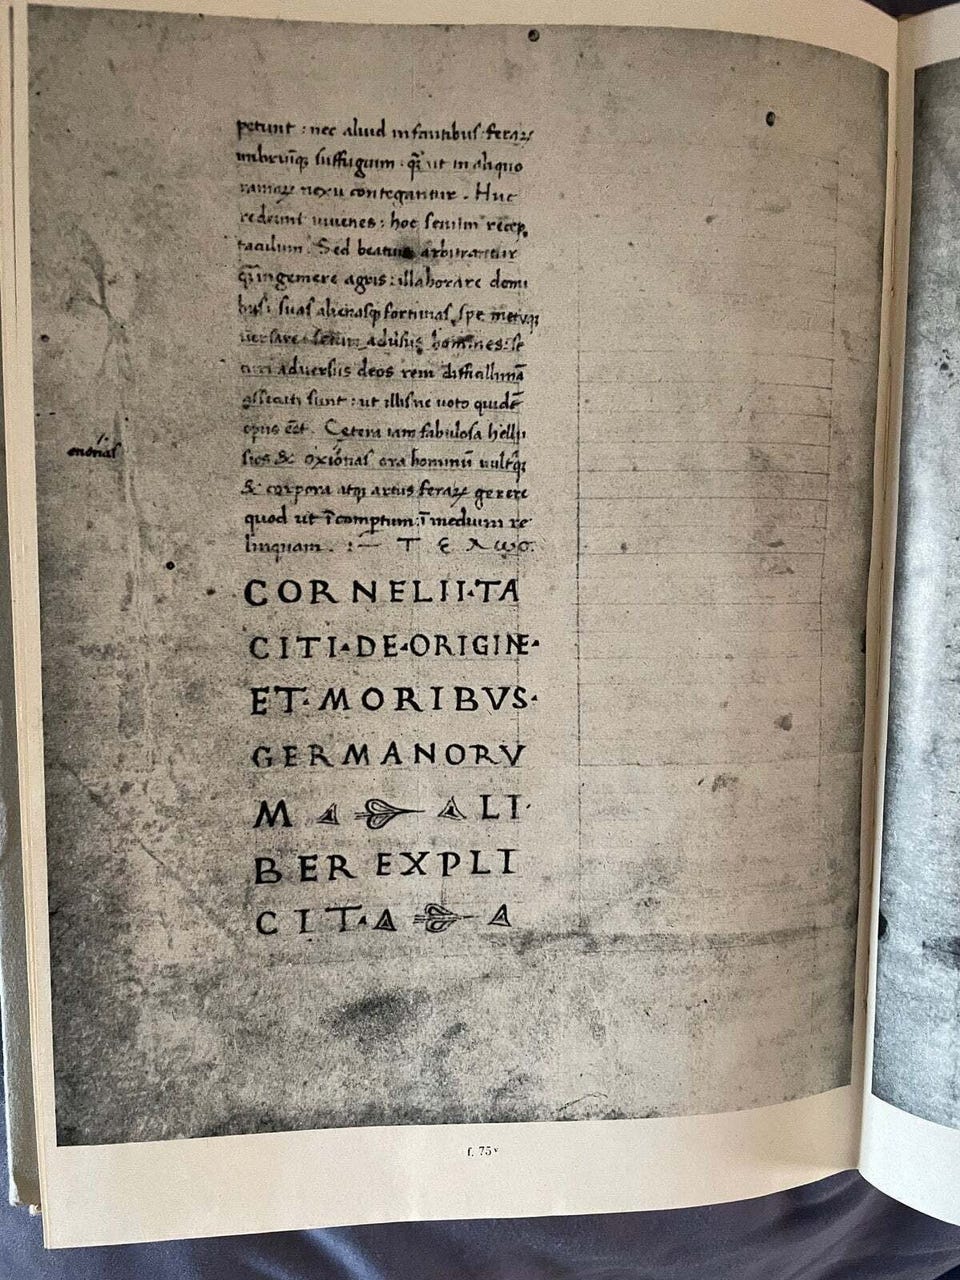 petunt : nec aliud infantibus ferarꝝ
imbriūq; suffugium · qā ut in aliquo
ramoꝝ nexu contegantur . Huc
redeunt iuuenes : hoc senum recep
taculum . Sed beatius arbitrantur
qā ingemere agris : illaborare domi
bus : suas alienasq; fortunas spe metuq;
uersare : adūsus homines : se
curi adversus deos rem difficillimā
assecuti sunt : ut illis ne uoto quidē
opus eēt . Cetera iam fabulosa hellu
sios & oxionas ora hominū uultūq;
& corpora atq; artus feraꝝ gerere
quod ut īcompertum : ī medium re
linquam . : — Τ Ε Λ ω σ.
CORNELII·TA
CITI·DE·ORIGINE·
ET·MORIBVS·
GERMANORV
M LI
BER EXPLI
CIT·
f. 75v